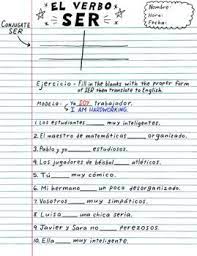 EL VERBO
SER
CONJUGATE
SER
Nombre:
Hora:
Fecha:
Ejercicio - Fill in the blanks with the proper form
of SER then translate to English.
Modelo - Yo SOY trabajador.
I AM HARDWORKING.
1. Los estudiantes ____ muy inteligentes.
2. El maestro de matemáticas ____ organizado.
3. Pablo y yo ____ estudiosos.
4. Los jugadores de béisbol ____ atléticos.
5. Tú ____ muy cómico.
6. Mi hermano ____ un poco desorganizado.
7. Vosotros ____ muy simpáticos.
8. Luisa ____ una chica seria.
9. Javier y Sara no ____ perezosos.
10. Ella ____ muy inteligente.